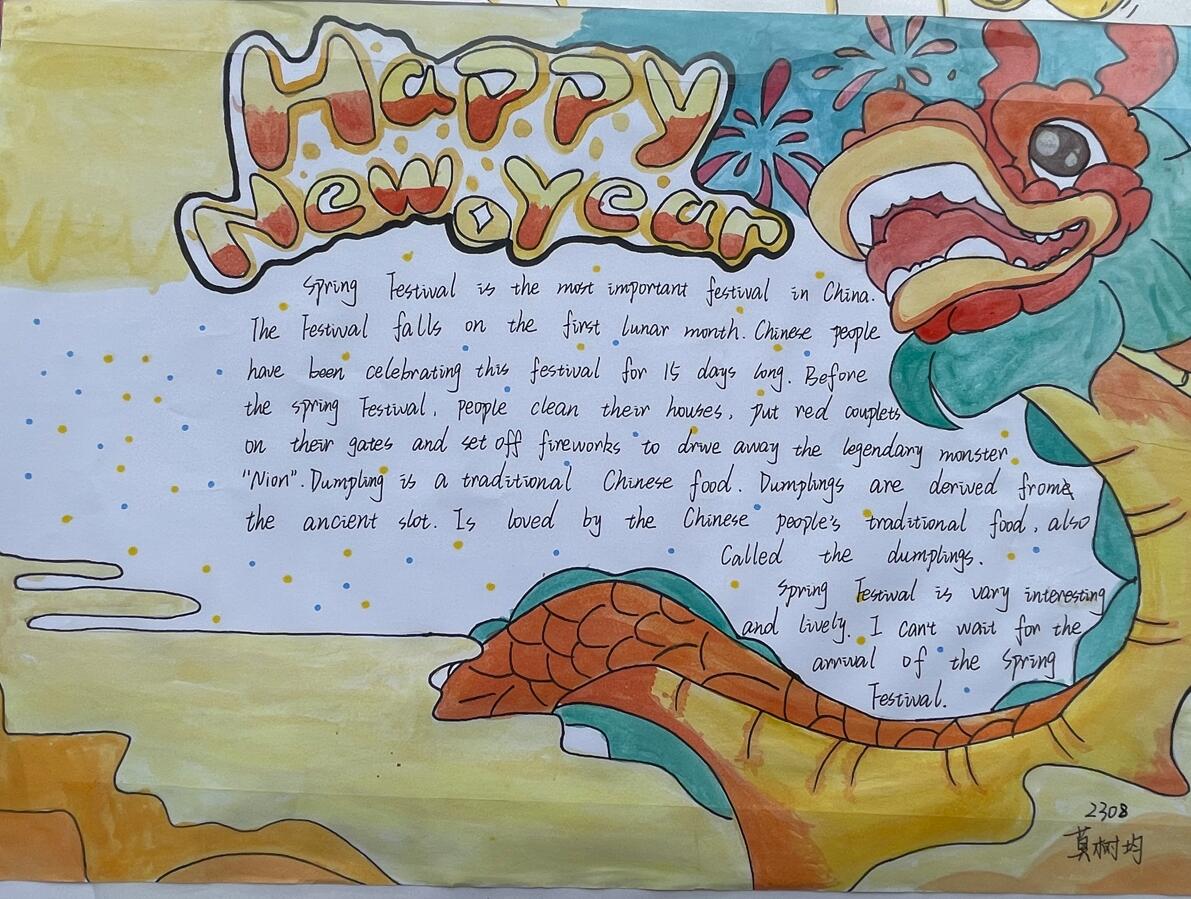 Happy
New Year
Spring Festival is the most important festival in China.
The Festival falls on the first lunar month. Chinese people
have been celebrating this festival for 15 days long. Before
the spring Festival, people clean their houses, put red couplets
on their gates and set off fireworks to drive away the legendary monster
"Nion". Dumpling is a traditional Chinese food. Dumplings are derived from
the ancient slot. Is loved by the Chinese people's traditional food, also
Called the dumplings.
Spring Festival is vary interesting
and lively. I can't wait for the
arrival of the Spring
Festival.
2308
莫树均